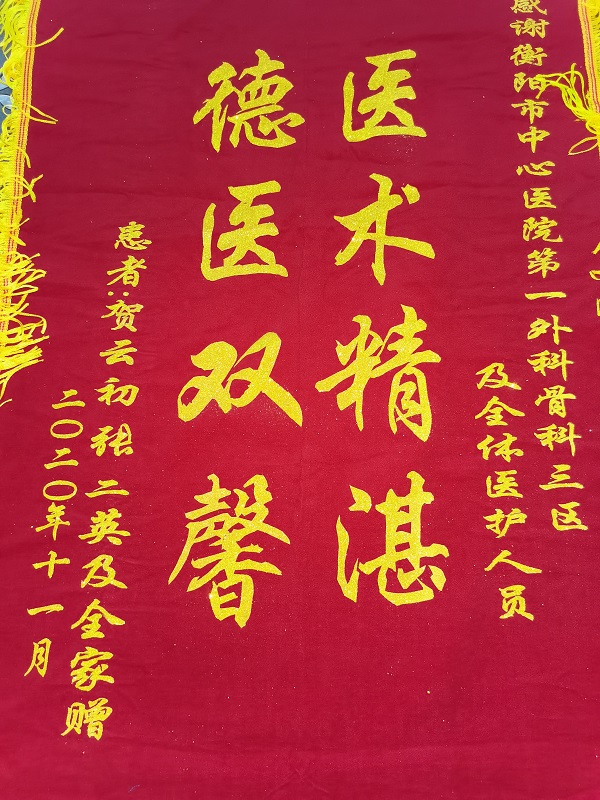 感谢衡阳市中心医院第一外科骨科三区
及全体医护人员
医术精湛
德医双馨
患者:贺云初张二英及全家赠
二〇二〇年十一月